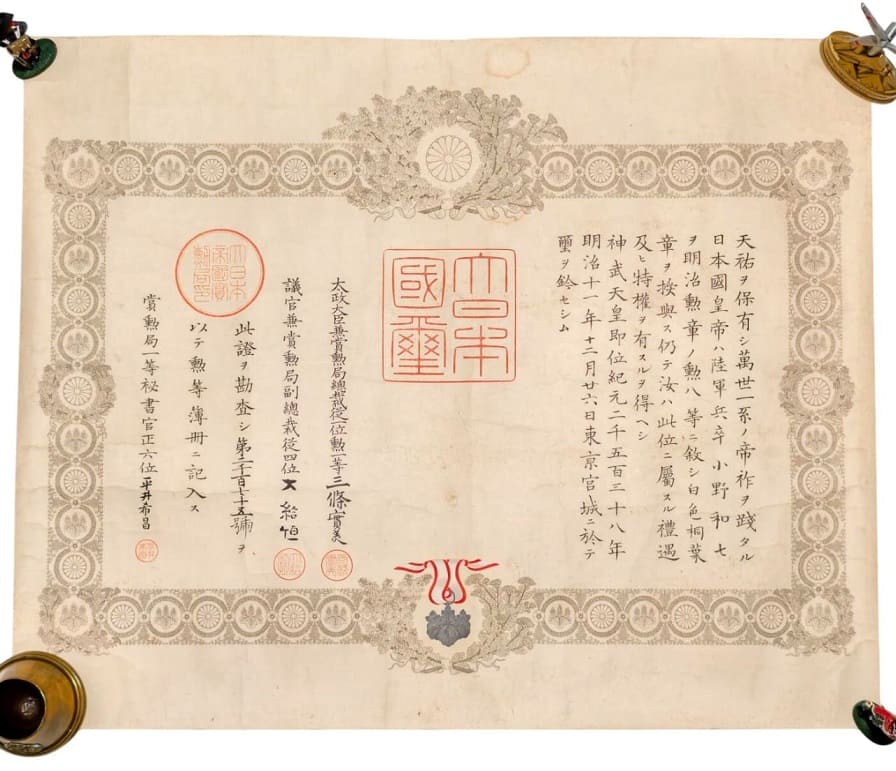 天祐ヲ保有シ萬世一系ノ帝祚ヲ踐タル
日本國皇帝ハ陸軍兵卒小野和七
ヲ明治勲章ノ勲八等ニ敘シ白色桐葉
章ヲ授與ス仍テ汝ハ此位ニ屬スル禮遇
及ヒ特權ヲ有スルヲ得ヘシ
神武天皇即位紀元二千五百三十八年
明治十一年十二月廿六日東京宮城ニ於テ
璽ヲ鈐セシム
大日本
國璽
太政大臣兼賞勲局總裁從一位勲一等三條實美
議官兼賞勲局副總裁從四位大給恒
大日本
帝國賞
勲局印
此證ヲ勘査シ第二千百七十五號ヲ
以テ勲等簿冊ニ記入ス
賞勲局一等秘書官正六位平井希昌